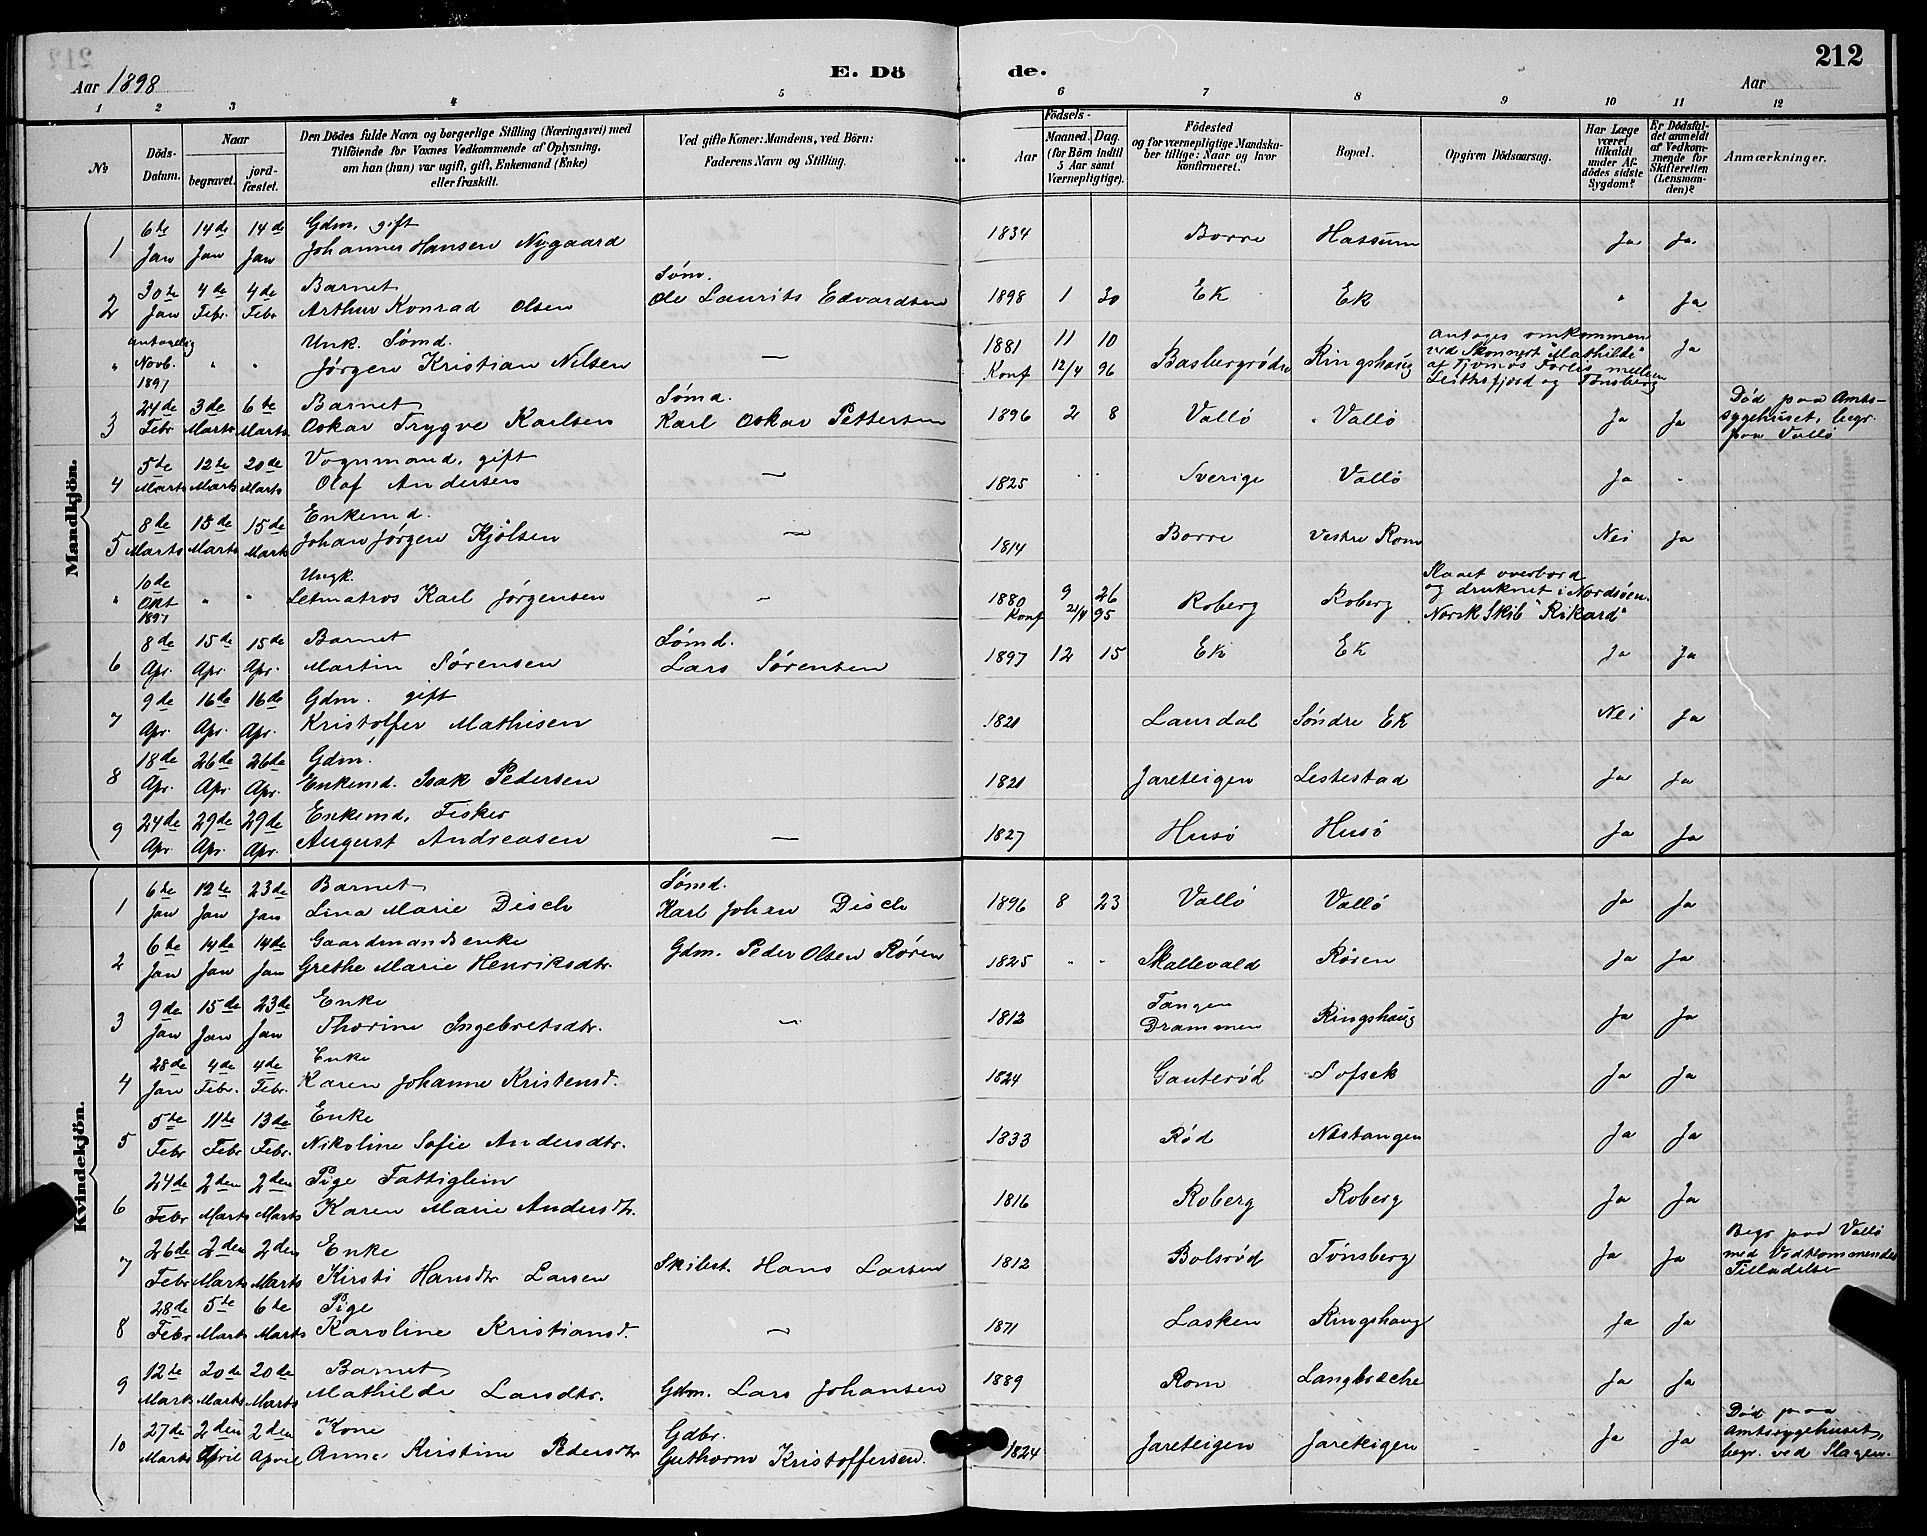 212
Aar 1898
E. Dö
de.
Aar
1 2 3 4 5 6 7 8 9 10 11 12
No
Döds-Datum.
Naar
begravet.
jord-fæstet.
Den Dödes fulde Navn og borgerlige Stilling (Næringsvei) med
Tilföiende for Voxnes Vedkommende af Oplysning,
om han (hun) var ugift, gift, Enkemand (Enke)
eller fraskilt.
Ved gifte Koner: Mandens, ved Börn:
Faderens Navn og Stilling.
Födsels-
Aar
Maaned. Dag.
(for Børn indtil
5 Aar samt
Værnepligtige).
Födested
og for værnepligtige Mandska-
ber tillige: Naar og hvor
konfirmeret.
Bopæl.
Opgiven Dödsaarsag.
Har Læge
været
tilkaldt
under Af-
dödes sidste
Sygdom?
Er Dödsfal-
det anmeldt
af Vedkom-
mende for
Skifteretten
(Lensman-
den)?
Anmærkninger.
Mandkjön.
1 6te Jan 14de Jan 14de Jan Gdm. gift Johannes Hansen Nygaard 1834 Borre Hassum Ja Ja
2 30te Jan 4de Febr. 4de Febr Barnet Arthur Konrad Olsen Søm. Ole Laurits Edvardsen 1898 1 30 Ek Ek " Ja
" antagelig Novb. 1897 " " Unk. Sømd. Jørgen Kristian Nilsen — 1881 11 10 Konf 12/4 96 Basbergrødn Ringshaug antages omkommen ved Skonnert "Mathilde" af Tjømøs Forlis mellem Leithsfjord og Tønsberg Ja
3 24de Febr 3de Marts 6te Marts Barnet Oskar Trygve Karlsen Sømd. Karl Oskar Pettersen 1896 2 8 Vallö Vallö Ja Ja Død paa Amts-sygehuset, begr. paa Vallö
4 5te Marts 12te Marts 20de Marts Vognmand, gift Olaf Andersen — 1825 Sverige Vallö Ja
5 8de Marts 15de Marts 15de Marts Enkemd. Johan Jørgen Kjölsen — 1814 Borre Vestre Rom Nei Ja
" 10de Okt 1897 " " Ungk. Letmatros Karl Jørgensen — 1880 9 26 Konf 21/4 95 Roberg Roberg Slaaet overbord og druknet i Nordsøen. Norsk Skib "Rikard"
6 8de Apr. 15de Apr. 15de Apr. Barnet Martin Sørensen Sømd. Lars Sørensen 1897 12 15 Ek Ek Ja Ja
7 9de Apr. 16de Apr. 16de Apr. Gdm. gift Kristoffer Mathisen 1821 Laurdal Søndre Ek Nei Ja
8 18de Apr. 26de Apr. 26de Apr. Gdm. Enkemd. Isak Pedersen 1821 Jareteigen Lestestad Ja Ja
9 24de Apr. 29de Apr. 29de Apr. Enkemd. Fisker August Andreasen — 1827 Husö Husö Ja Ja
Kvindekjön.
1 6te Jan 12te Jan 23de Jan Barnet Lina Marie Disch Sømd. Karl Johan Disch 1896 8 23 Vallö Vallö Ja Ja
2 6te Jan 14de Jan 14de Jan Gaardmandsenke Grethe Marie Henriksdtr. Gdm. Peder Olsen Røren 1825 - - Skallevald Røren Ja Ja
3 9de Jan 15de Jan 23de Jan Enke Thorine Ingebretsdtr. — 1812 Tangen Drammen Ringshaug Ja Ja
4 28de Jan 4de Febr. 4de Febr. Enke Karen Johanne Kristensd. 1824 Gauterød Sofsek Ja Ja
5 5te Febr 11te Febr 13de Febr. Enke Nikoline Sofie Andersdtr. 1833 Rød Nøstangen Ja Ja
6 24de Febr 2den Marts 2den Marts Pige Fattiglem Karen Marie Andersdtr. 1816 Roberg Roberg Ja Ja
7 26de Febr 2den Marts 2den Marts Enke Kirsti Hansdtr Larsen Skibst. Hans Larsen 1812 Bolsrød Tønsberg Ja Ja Begr. paa Vallö med Vedkommendes Tilladelse
8 28de Febr 5te Marts 6te Marts Pige Karoline Kristiansd. — 1871 Lasken Ringshaug Ja Ja
9 12te Marts 20de Marts 20de Marts Barnet Mathilde Larsdtr. Gdm. Lars Johansen 1889 Rom Langbrække Ja Ja
10 27de Marts 2den April 2den April Kone Anne Kirstine Pedersdtr Gdbr. Guthorm Kristoffersen. 1824 Jareteigen Jareteigen Ja Ja Død paa Amtssygehuset, begr. ved Slagen.